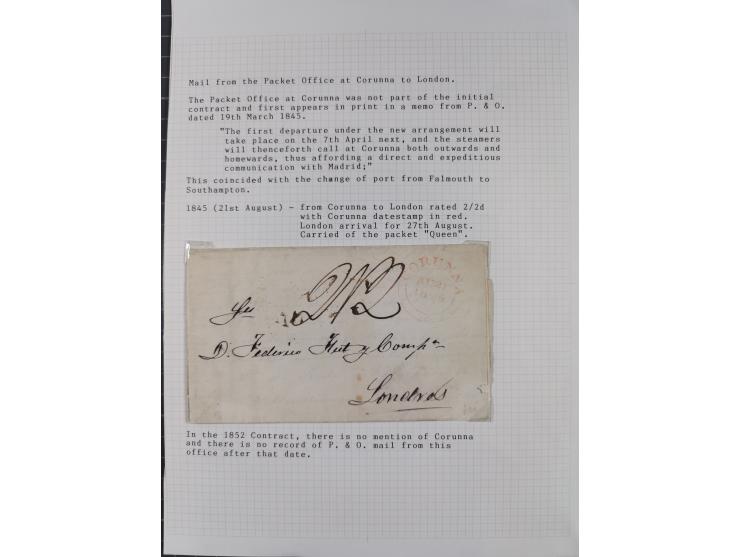 Mail from the Packet Office at Corunna to London.
The Packet Office at Corunna was not part of the initial
contract and first appears in print in a memo from P. & O.
dated 19th March 1845.
"The first departure under the new arrangement will
take place on the 7th April next, and the steamers
will thenceforth call at Corunna both outwards and
homewards, thus affording a direct and expeditious
communication with Madrid;"
This coincided with the change of port from Falmouth to
Southampton.
1845 (21st August) - from Corunna to London rated 2/2d
with Corunna datestamp in red.
London arrival for 27th August.
Carried of the packet "Queen".
CORUNNA
2/2
D. Federico Hut y Compa
Londres
In the 1852 Contract, there is no mention of Corunna
and there is no record of P. & O. mail from this
office after that date.